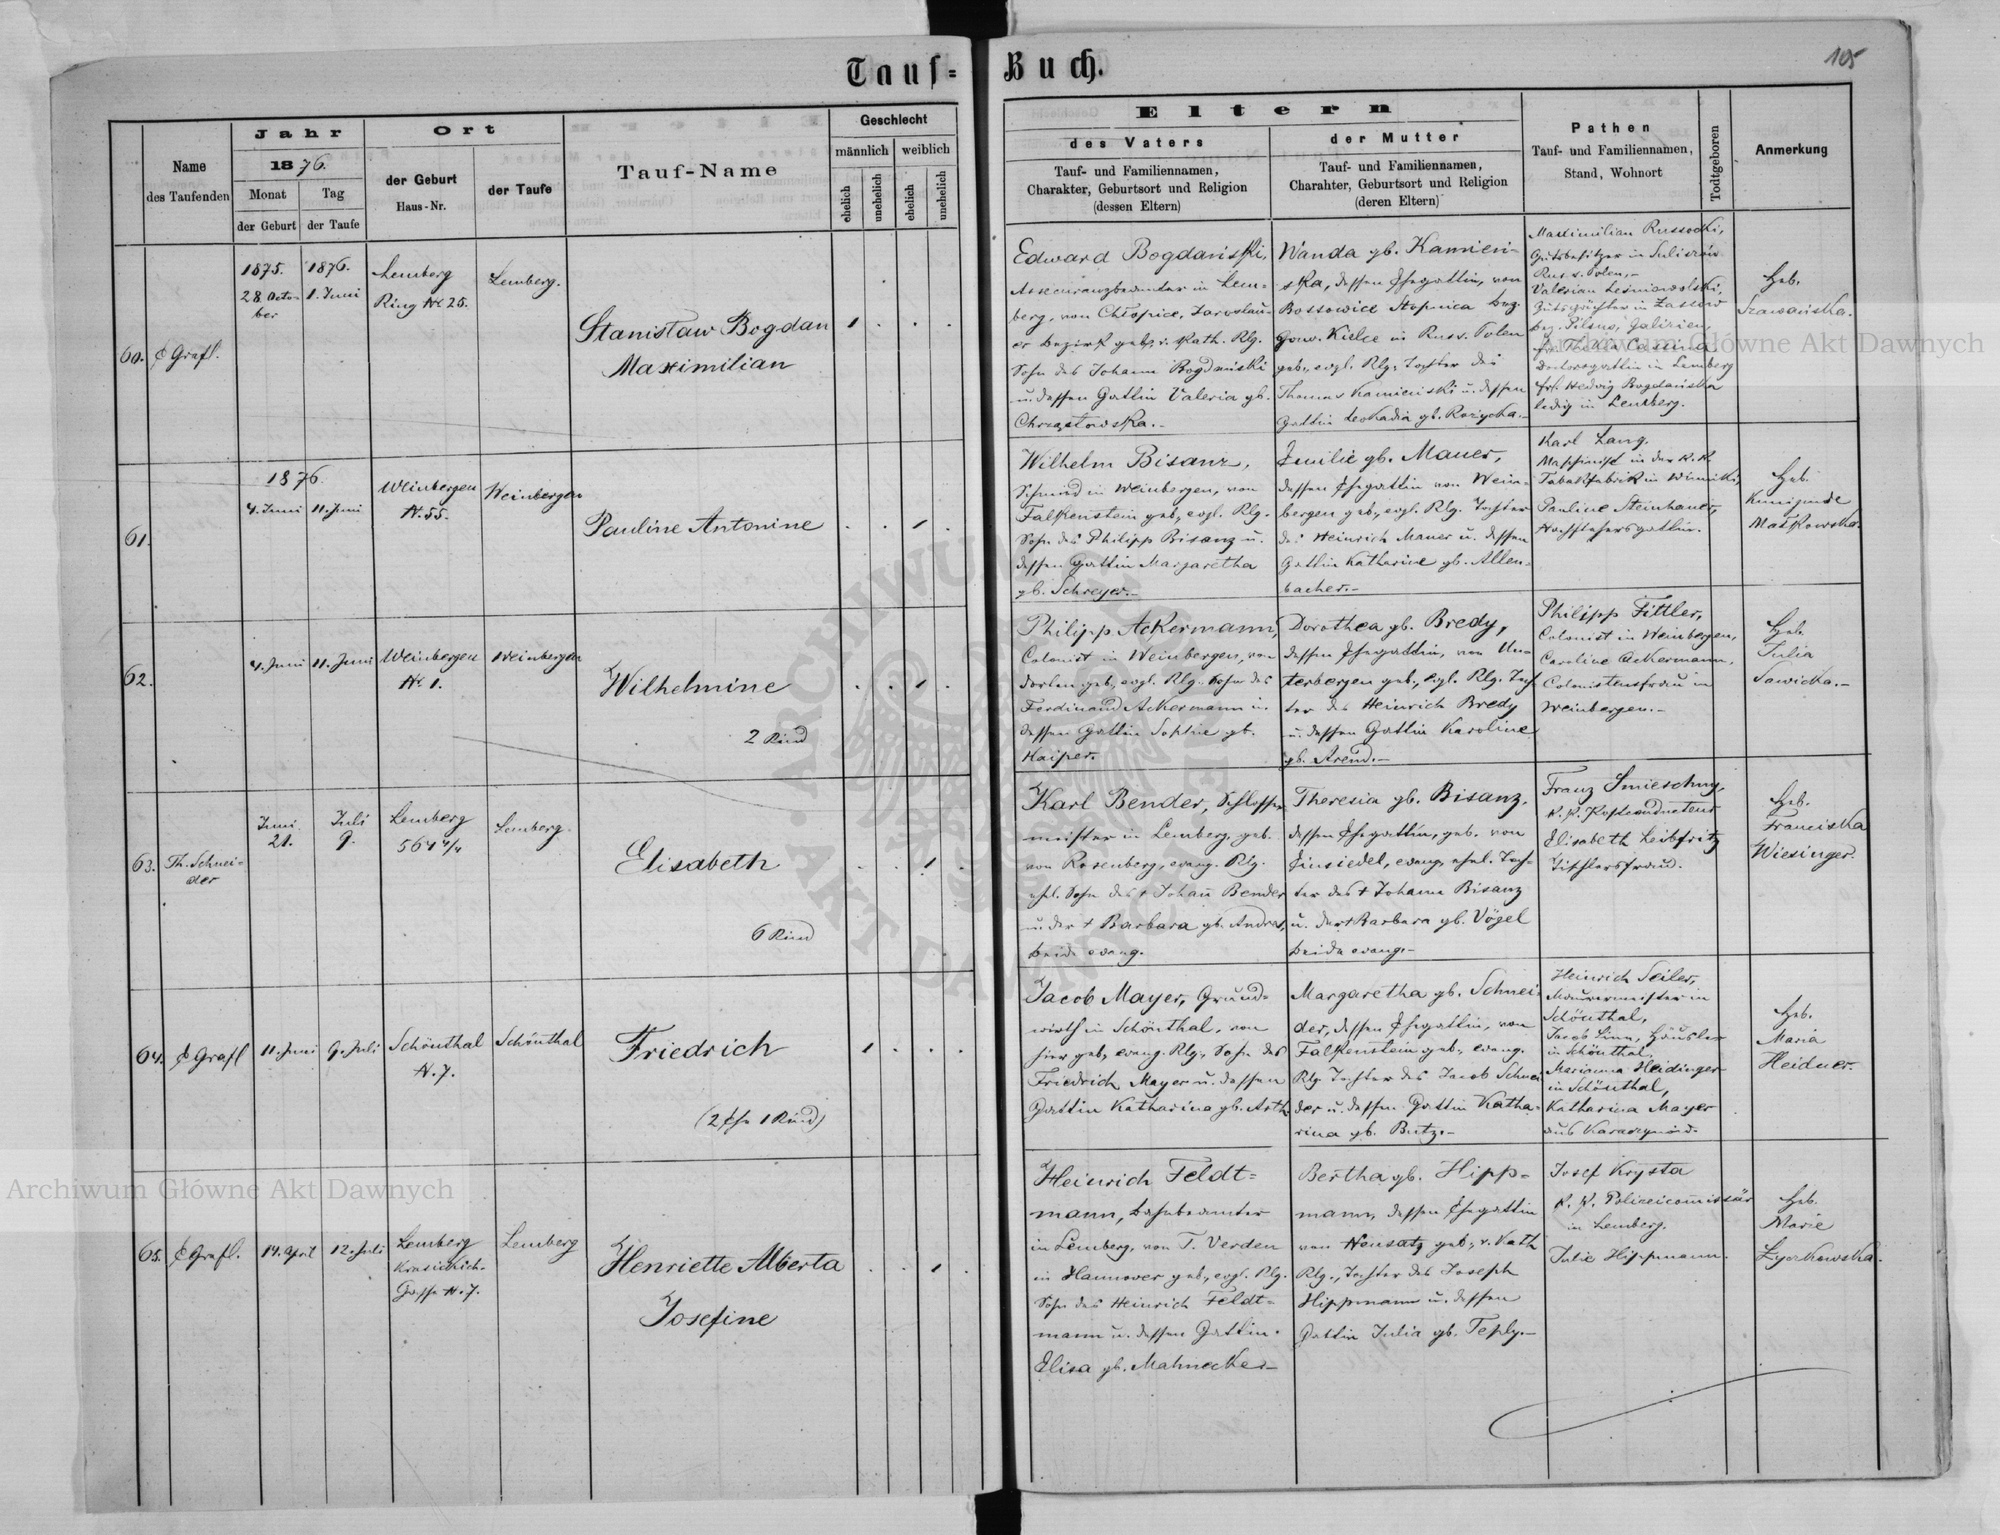 105
Tauf-Buch.
Name
des Taufenden
Jahr
1876.
Monat
der Geburt
Tag
der Taufe
Ort
der Geburt
Haus-Nr.
der Taufe
Tauf-Name
Geschlecht
männlich
weiblich
ehelich
unehelich
ehelich
unehelich
Eltern
des Vaters
Tauf- und Familiennamen,
Charakter, Geburtsort und Religion
(dessen Eltern)
der Mutter
Tauf- und Familiennamen,
Charahter, Geburtsort und Religion
(deren Eltern)
Pathen
Tauf- und Familiennamen,
Stand, Wohnort
Todtgeboren
Anmerkung
60.
Grafl.
1875.
28 Octo-
ber
1876.
1. Juni
Lemberg
Ring № 25.
Lemberg.
Stanisław Bogdan
Maximilian
Edward Bogdański,
Assecuranzbeamter in Lem-
berg, von Chłopice, Jaroslau-
er Bezirk geb. r. kath. Rlg.
Sohn des Johann Bogdański
u. dessen Gattin Valeria gb.
Chrząstowska.-
Wanda gb. Kamieni-
ska, dessen Ehegattin, von
Bossowice Stopnica bez.
Gouv. Kielce in Russ. Polen
geb., evgl. Rlg. Tochter des
Thomas Kamieniski u. dessen
Gattin Leokadia gb. Rożycka.-
Maximilian Russocki,
Gutsbesitzer in
Russ. Polen,-
Valerian Leśniowolski,
Gutspächter in Zassów
bez. Pilsno, Galizien,
Thekla
Doctorsgattin in Lemberg
Hedwig Bogdańska
ledig in Lemberg.
Heb.
Szawańska.
61.
1876.
4. Juni
11. Juni
Weinbergen
N. 55.
Weinbergen
Pauline Antonine
Wilhelm Bisanz,
Schmid in Weinbergen, von
Falkenstein geb., evgl. Rlg.
Sohn des Philipp Bisanz u.
dessen Gattin Margaretha
gb. Schreyer.-
Emilie gb. Mauer,
dessen Ehegattin von Wein-
bergen geb., evgl. Rlg. Tochter
des Heinrich Mauer u. dessen
Gattin Katharine gb. Allen-
bacher.-
Karl Lang.
Maschinist in der k. k.
Tabakfabrik in Winniki,
Pauline Steinhauer,
Hochstehersgattin.
Heb.
Kunigunde
Małkowska.
62.
4. Juni
11. Juni
Weinbergen
№ 1.
Weinbergen
Wilhelmine
2 Kind
Philipp Ackermann,
Colonist in Weinbergen, von
dorten geb., evgl. Rlg. Sohn des
Ferdinand Ackermann u.
dessen Gattin Sophie gb.
Haiper.
Dorothea gb. Bredy,
dessen Ehegattin, von Un-
terbergen geb., evgl. Rlg. Toch-
ter des Heinrich Bredy
u. dessen Gattin Karoline
gb. Arend.-
Philipp Fittler,
Colonist in Weinbergen,
Caroline Ackermann,
Colonistensfrau in
Weinbergen.-
Heb.
Julia
Sawicka.-
63.
Th. Schnei-
der
Juni
21.
Juli
9.
Lemberg
564 4/4
Lemberg.
Elisabeth
6 Kind
Karl Bender, Schlosser-
meister in Lemberg, geb.
von Rosenberg, evang. Rlg.
ehel. Sohn des † Johann Bender
u. der † Barbara gb. Andres,
beide evang.
Theresia gb. Bisanz.
dessen Ehegattin, geb. von
Einsiedel, evang. ehel. Toch-
ter des † Johann Bisanz
u. der † Barbara gb. Vögel
beide evang.-
Franz Smieschny,
k. k. Postconducteur
Elisabeth Leibfritz
Tischlersfrau.
Heb.
Franciska
Wiesinger.
64.
Grafl
11. Juni
9. Juli
Schönthal
N. 7.
Schönthal
Friedrich
(2 Ehe 1 Kind)
Jacob Mayer, Grund-
wirth in Schönthal, von
hier geb., evang. Rlg., Sohn des
Friedrich Mayer u. dessen
Gattin Katharina gb. Arth
Margaretha gb. Schnei-
der, dessen Ehegattin, von
Falkenstein geb., evang.
Rlg. Tochter des Jacob Schnei-
der u. dessen Gattin Katha-
rina gb. Butz.-
Heinrich Seiler,
Maurermeister in
Schönthal,
Jacob Linn, Häusler
in Schönthal,
Marianna Heidinger
in Schönthal,
Katharina Mayer
aus
Heb.
Maria
Heidner.
65.
Grafl.
14. April
12. Juli
Lemberg
Gasse N. 7.
Lemberg
Henriette Alberta
Josefine
Heinrich Feldt-
mann, Bahnbeamter
in Lemberg, von T. Verden
in Hannover geb., evgl. Rlg.
Sohn des Heinrich Feldt-
mann u. dessen Gattin
Elisa gb. Mahnecke.-
Bertha gb. Hipp-
mann, dessen Ehegattin
von Neusatz geb., r. Kath
Rlg., Tochter des Joseph
Hippmann u. dessen
Gattin Julia gb. Teply.-
Josef Krysta
k. k. Policeicommissär
in Lemberg.
Julie Hippmann.
Heb.
Marie
Zyorkowska.
Archiwum Główne Akt Dawnych
Archiwum Główne Akt Dawnych